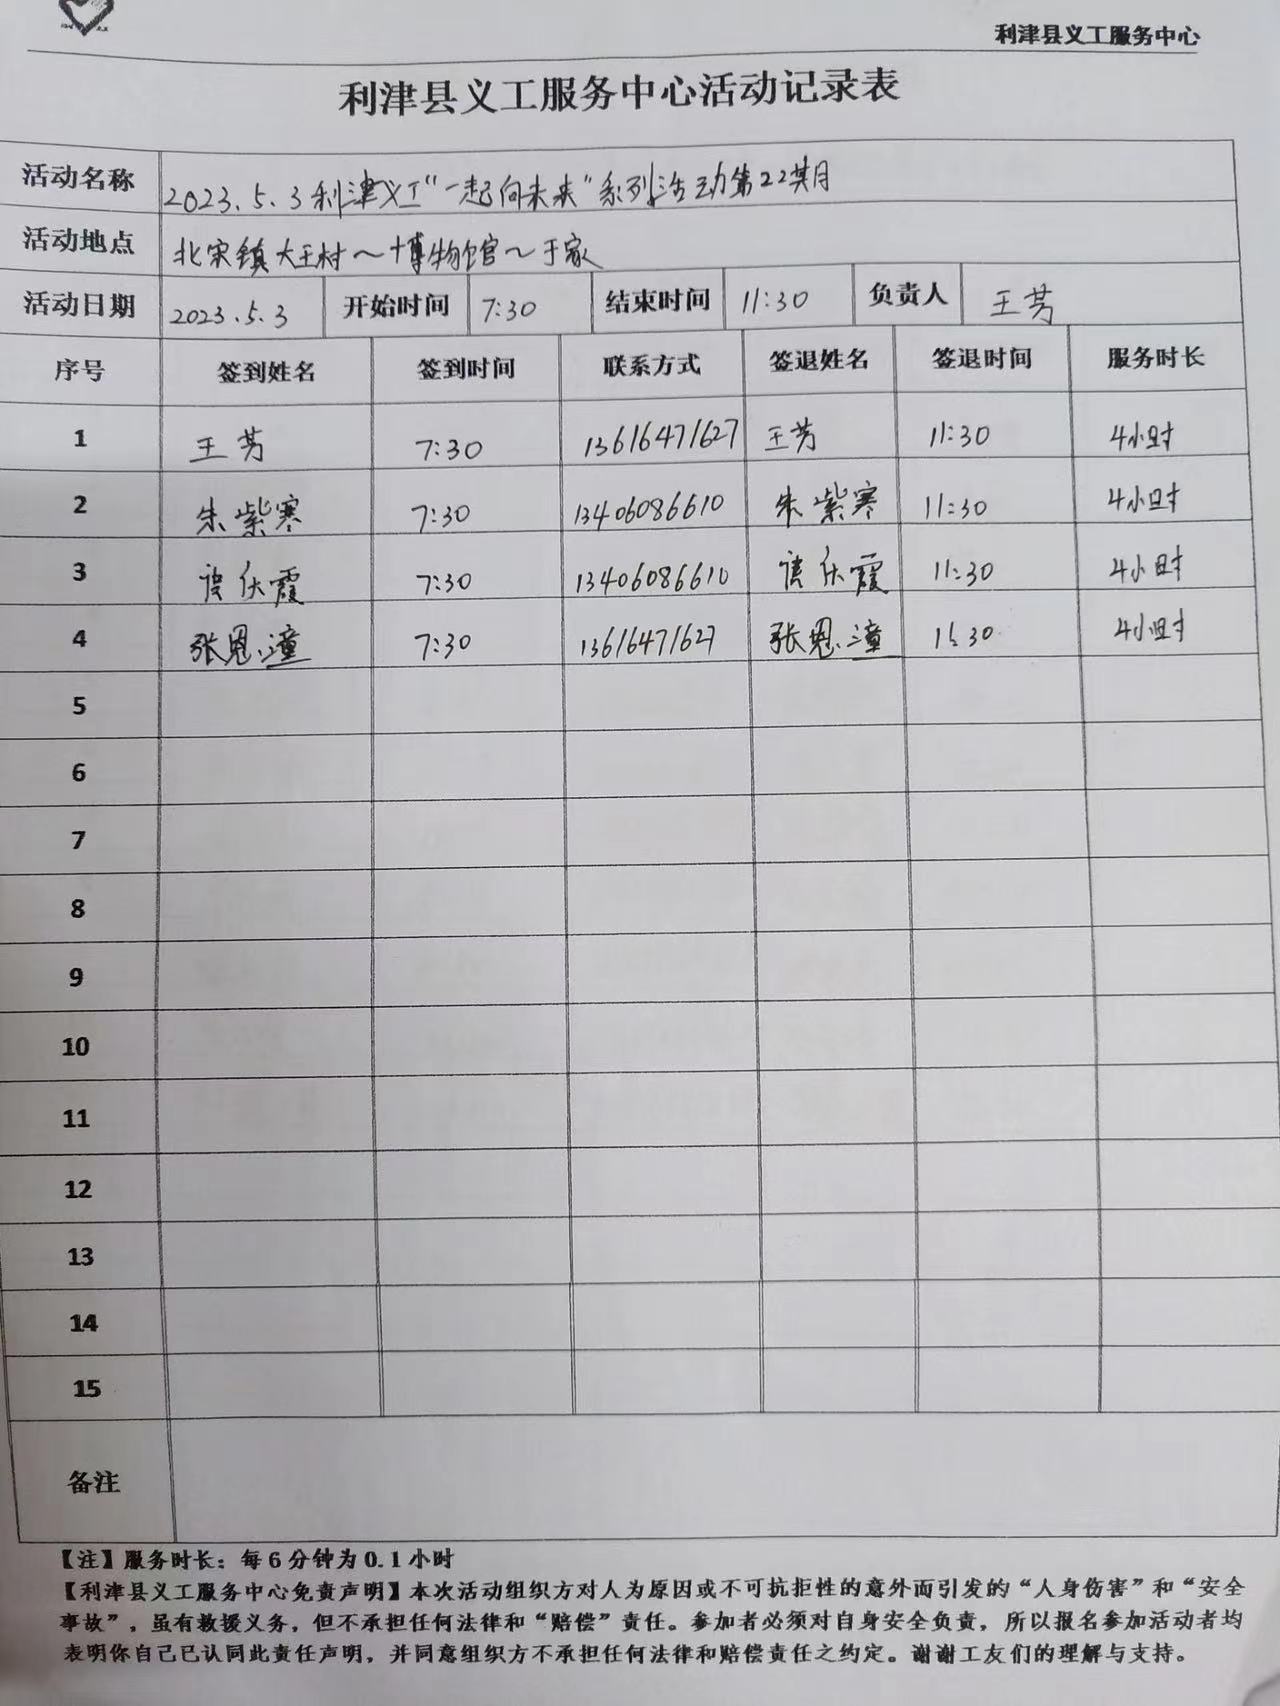 利津县义工服务中心
利津县义工服务中心活动记录表
活动名称 2023.5.3利津义工“一起向未来”系列活动第22期
活动地点 北宋镇大王村～博物馆～于家
活动日期 2023.5.3 开始时间 7:30 结束时间 11:30 负责人 王芳
序号 签到姓名 签到时间 联系方式 签退姓名 签退时间 服务时长
1 王芳 7:30 13616471627 王芳 11:30 4小时
2 朱紫寒 7:30 13406086610 朱紫寒 11:30 4小时
3 霞 7:30 13406086610 霞 11:30 4小时
4 张恩潼 7:30 13616471627 张恩潼 11:30 4小时
5
6
7
8
9
10
11
12
13
14
15
备注
【注】服务时长：每6分钟为0.1小时
【利津县义工服务中心免责声明】本次活动组织方对人为原因或不可抗拒性的意外而引发的“人身伤害”和“安全
事故”，虽有救援义务，但不承担任何法律和“赔偿”责任。参加者必须对自身安全负责，所以报名参加活动者均
表明你自己已认同此责任声明，并同意组织方不承担任何法律和赔偿责任之约定。谢谢工友们的理解与支持。